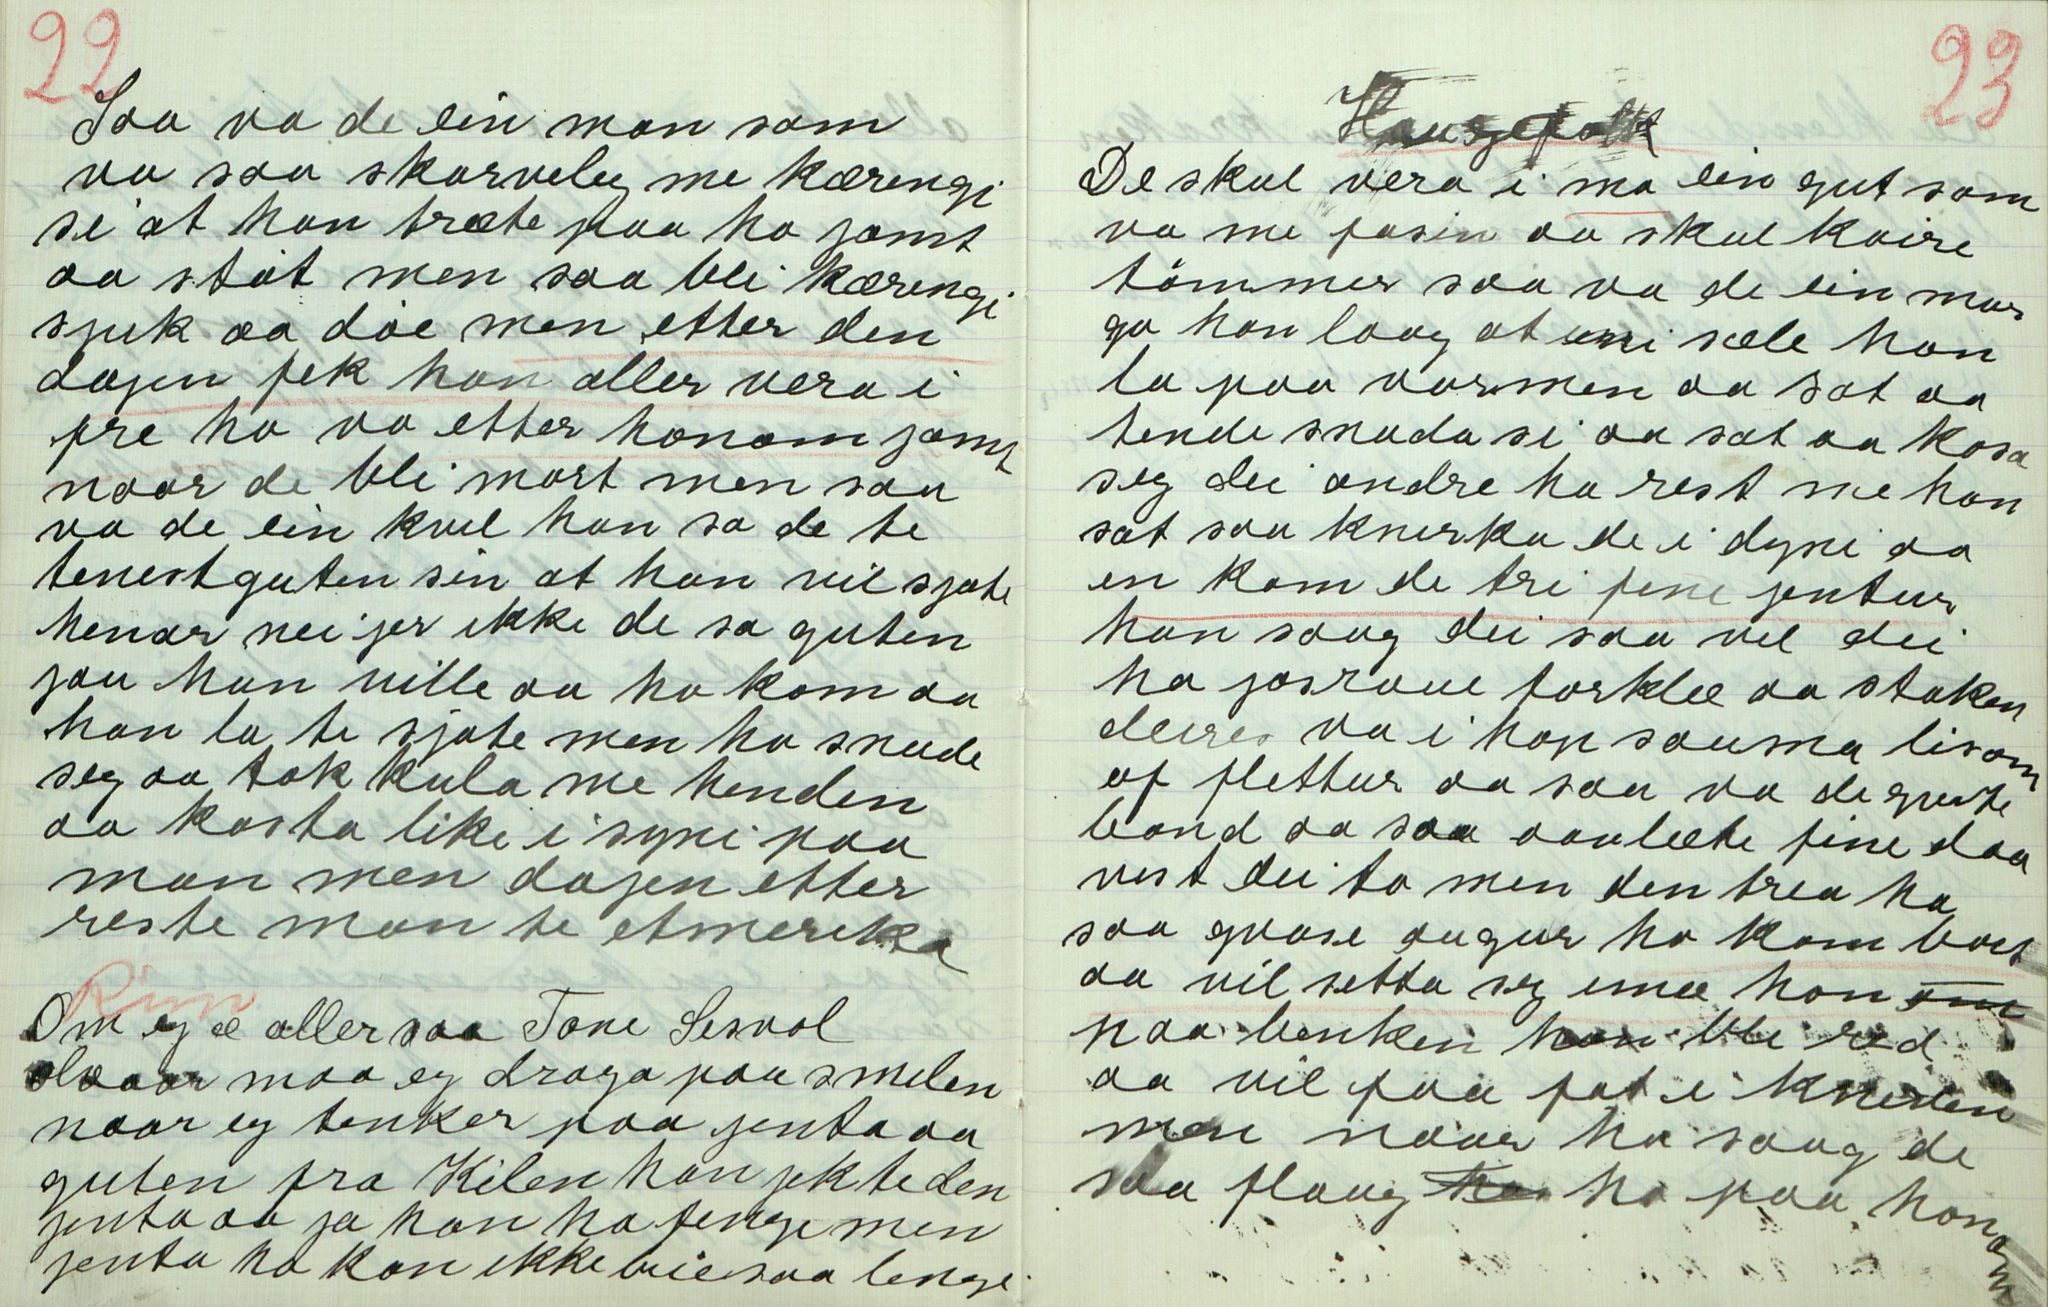 22
Saa va de ein man som
va saa skarveleg me kærengi
si at han træte paa ho jamt
aa støt men saa blei kærengi
sjuk aa døe men etter den
dagen fek han aller vera i
fre ho va etter honom jamt
naar de blei mørt men saa
va de ein kvel han sa de te
tenestguten sin at han vil sjøte
henar nei jer ikke de sa guten
jau han ville aa ho kom aa
han la te sjøte men ho snude
seg aa tok kula me henden
aa kasta like i syni paa
man men dagen etter
reste man te Amerika
Rim
Om eg æ aller saa Tone Sesvol
maa eg draga paa smilen
naar eg tenker paa jenta aa
guten fra Kilen han jekte den
jenta aa ja han ha fenge men
jenta ho kan ikke bie saa lenge
23
Haugefolk
De skul vera i ma ein gut som
va me fasin aa skul køire
tømmer saa va de ein mor
ga han laag at uni sæle han
la paa varmen aa sat aa
tende snada si aa sat aa kosa
seg dei andre ha rest me han
sat saa knirka de i dyni aa
en kom de tri fine jentur
han saag dei saa vel dei
ha josraue forklee aa staken
deires va i hop sauma lisom
af flettur aa saa va de gusste
bond aa saa aanlæte fine daa
vest dei to men den trea ha
saa gvase augur ho kom bort
aa vil setta seg imæ han
paa benken han blei red
aa vil faa fat i kneven
men naar ho saag de
saa flaug ho paa honom